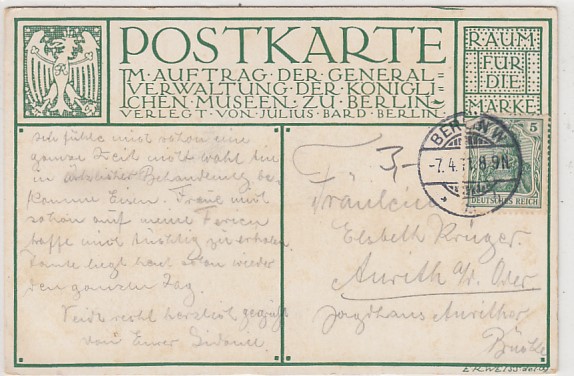 POSTKARTE
IM·AUFTRAG·DER·GENERAL=
VERWALTUNG·DER·KÖNIGLI=
CHEN·MUSEEN·ZU·BERLIN=
VERLEGT·VON·JULIUS·BARD·BERLIN
RAUM
FÜR
DIE
MARKE
BERLIN NW
-7.4. 8-9N.
5
DEUTSCHES REICH
3-
Ich fühle mich schon eine
ganze Zeit nicht wohl bin
in ärztlicher Behandlung be-
komme Eisen. Freue mich
schon auf meine Ferien
hoffe mich tüchtig zu erholen
Tante liegt heut schon wieder
den ganzen Tag.
Seid recht herzlich gegrüßt
von Eurer
Fräulein
Elsbeth Krüger.
Aurith a/d. Oder
Jagdhaus Aurither
E.R.WEISS